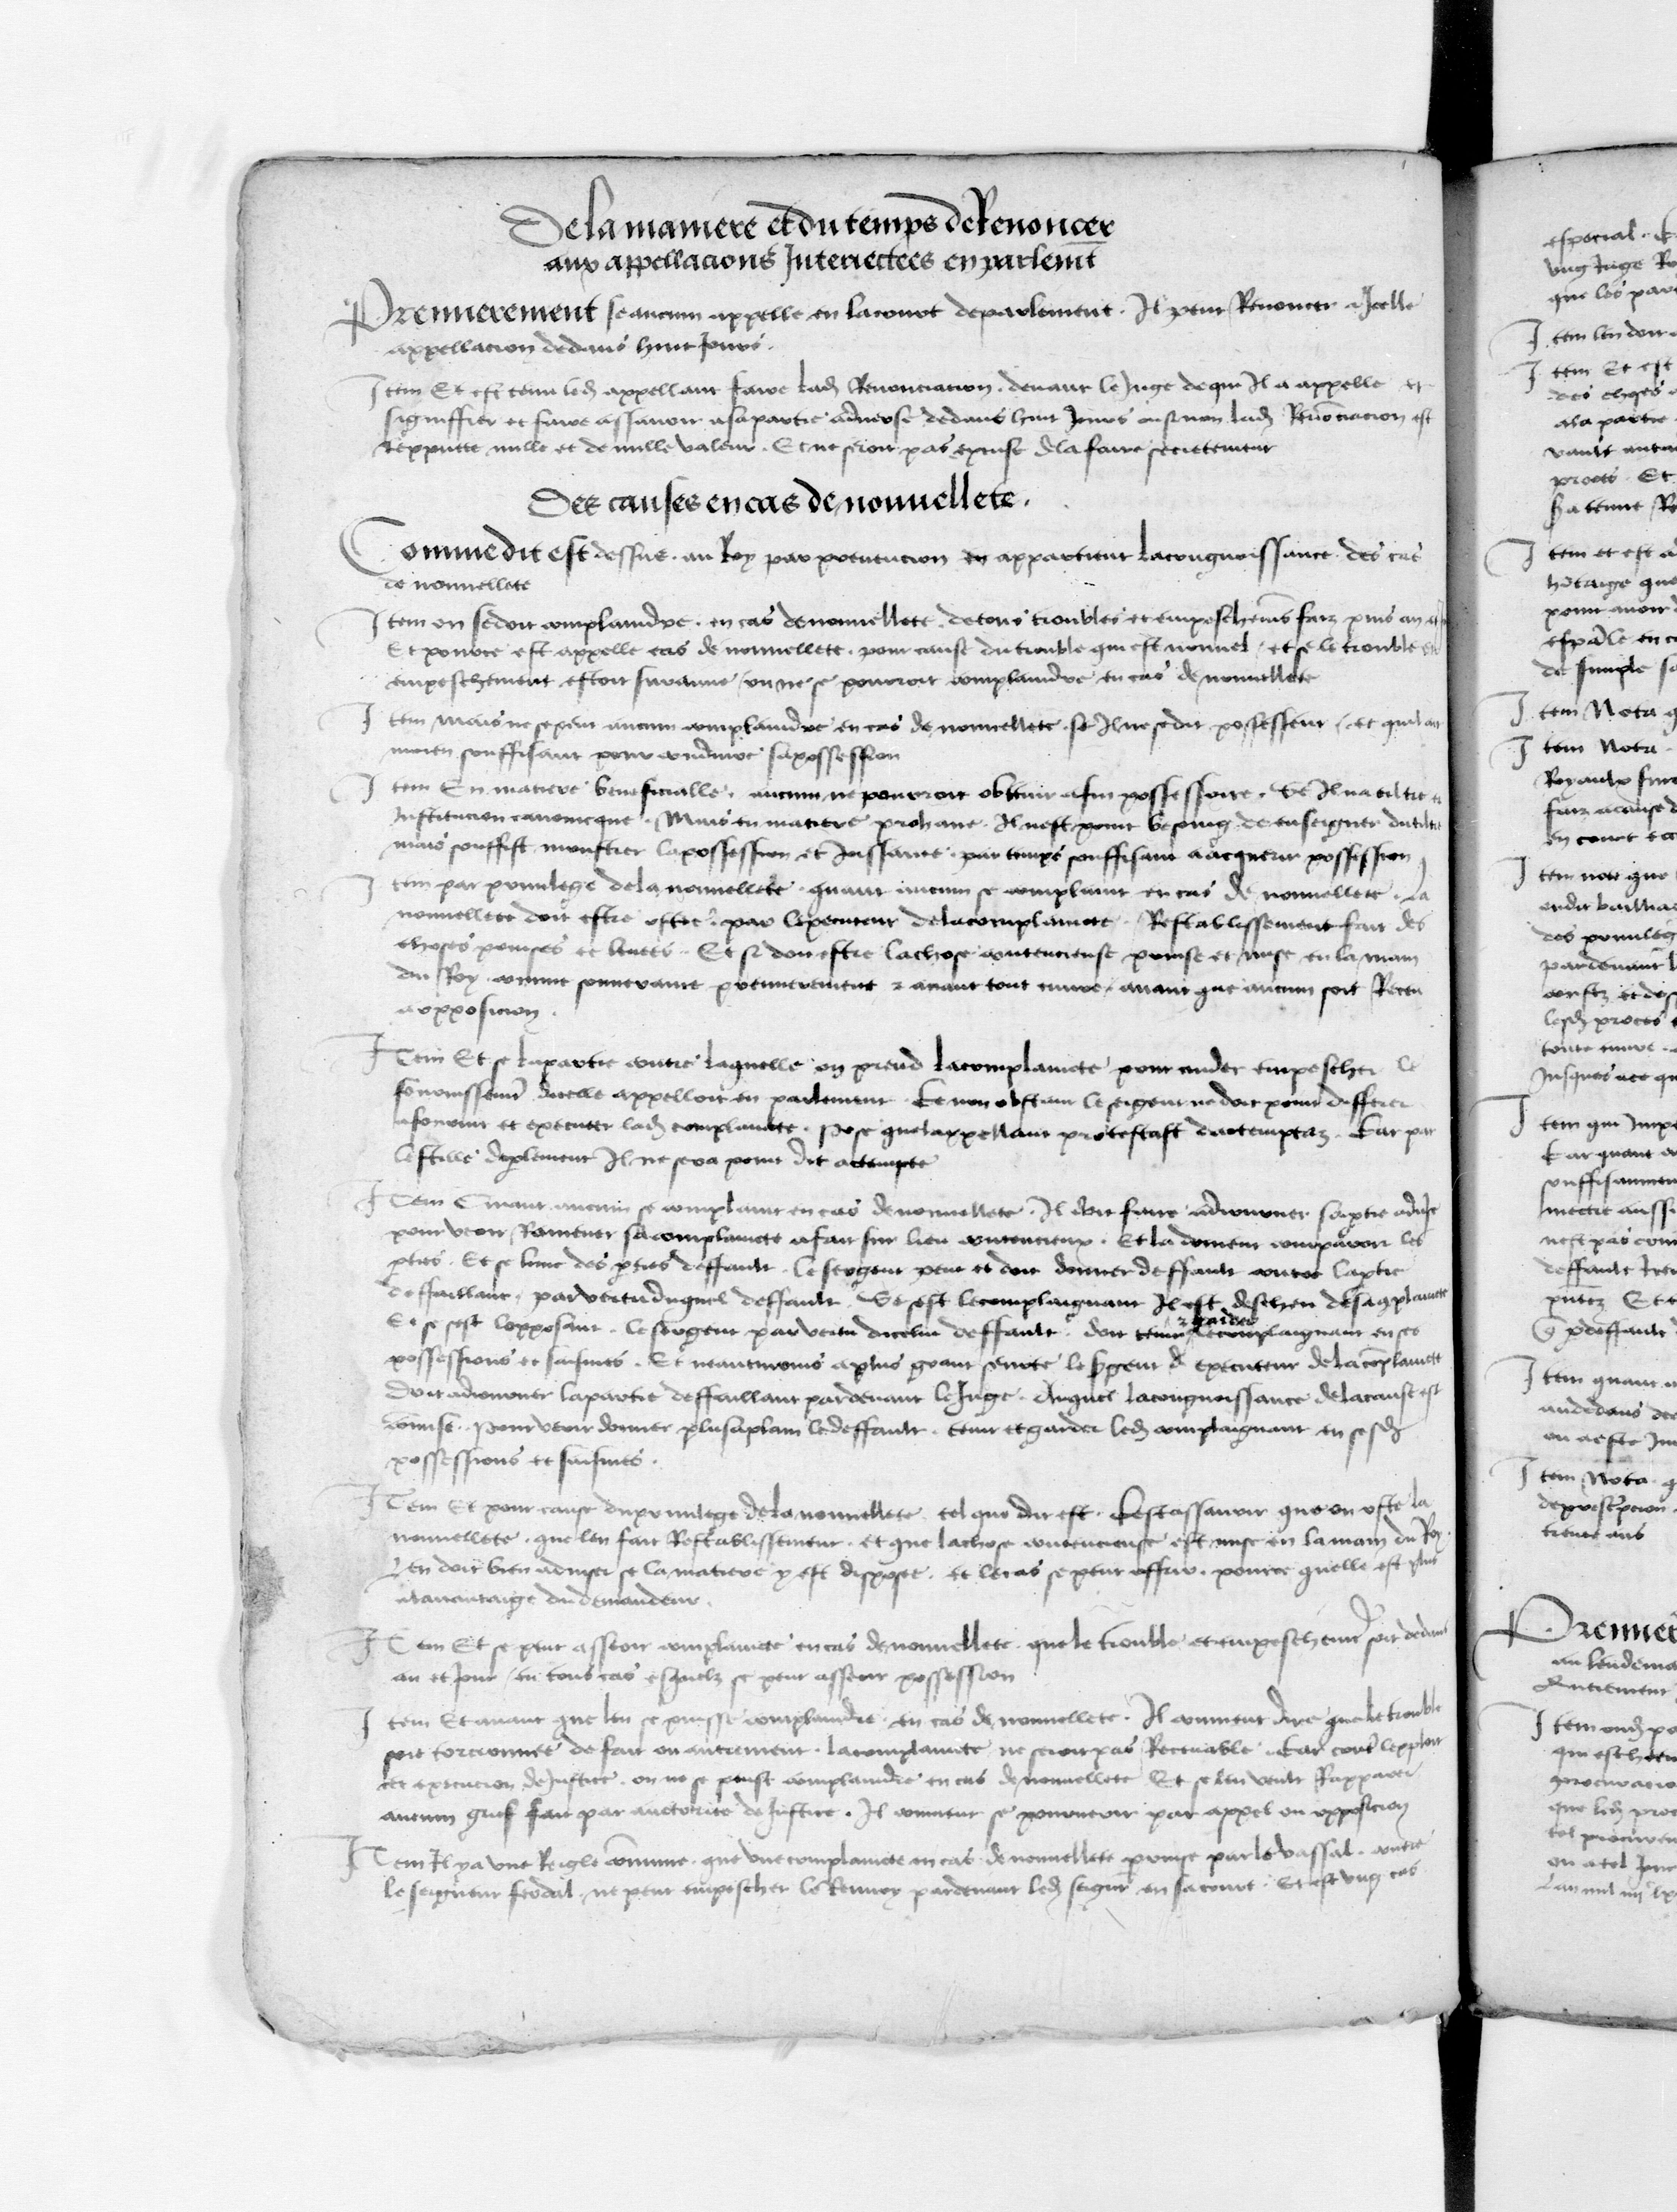 De la maniere et du temps de Renoncer
aux appellacions Interiectees en parlemt
Premierement se aucun appelle en la court de parlement. Il peut Renoncer a Icelle
appellacion dedans huit Jours.
Item Et est tenu led appellant faire lad Renonciacion. devant le Juge de qui Il a appelle et
signiffier et faire assavoir a sa partie adverse dedans huit Jours ou sinon lad Renociacion est
Repputee nulle et de nulle valeur. Et ne seroit pas excuse de la faire secretement
Des causes en cas de nouvellete.
Comme dit est dessus. au Roy par prevencion en appartient la congnoissance des cas
de nouvellete
Item on se doit complaindre. en cas de nouvellete. de tous troubles et empeschemens faiz puis an et
Et pource est appelle cas de nouvellete. pour cause du trouble qui est nouvel / et se le trouble ou
empeschement estoit suranne / on ne se pourroit complaindre en cas de nouvellete
Item Mais ne se peut aucun complaindre en cas de nouvellete se Il ne se dit possesseur / et quil ait
moien souffisant pour conduire sa possession
Item En matiere beneficialle. aucun ne pourroit obtenir afin possessoire. Se Il na tiltre et
Institucion canonicque. Mais en matiere prohane. Il nest point besoing de enseigner du tiltre
mais souffist monstrer la possession et Joissance. par temps souffisant a acquerir possession
Item par privilege de la nouvellete. quant aucun se complaint en cas de nouvellete. La
nouvellete doit estre ostee. par lexecuteur de la complaincte. Restablissement fait des
choses prinses et levees. Et si doit estre la chose contencieuse prinse et mise en la main
du Roy. comme souveraine premierement & avant tout euvre. avant que aucun soit Receu
a opposicion.
Item Et se la partie contre laquelle on prend la complaincte pour cuider empescher le
fournissemt dicelle appelloit en parlement. Ce non obstant le sergent ne doit point differer
a fournir et executer lad complaincte. Pose que lappellant protestast dactemptaz. Car par
le stille de plement Il ne sera point dit actempte
Item Quant aucun se complaint en cas de nouvellete. Il doit faire adjourner sa ptie advse
pour veoir Ramener sa complaincte a fait sur lieu contencieux. Et la doivent comparoir les
pties. Et se lune des pties deffault. le sergent peut et doit donner deffault contre la ptie
deffaillant. par vertu duquel deffault. Se cest le complaignant Il est descheu de sa cplaincte
Et se cest lopposant. le sergent par vertu dicelui deffault. doit tenir & garder le complaignant en ses
possessions et saisines. Et neantmoins a plus grant seurte le sgent & executeur de la coplaincte
doit adjourner la partie deffaillant pardevant le Juge. Auquel la congnoissance de la cause est
comise. Pour veoir donner plus a plain led deffault. tenir et garder led complaignant en sesd
possessions et saisines.
Item Et pour cause du privilege de la nouvellete tel que dit est. Cest assavoir que on oste la
nouvellete. que len fait Restablissement. et que la chose contencieuse est mise en la main du Roy.
Len doit bien adviser se la matiere y est disposee. et le cas se peut offrir. pource quelle est plus
a lavantaige du demandeur.
Item Et se peut asseoir complaincte en cas de nouvellete. que le trouble et empeschemt soit dedans
an et Jour / en tous cas esquelz se peut asseoir possession
Item Et avant que len se puisse complaindre en cas de nouvellete. Il convient dire que le trouble
soit torcionnee de fait ou autrement. la complaincte ne seroit pas Recevable. Car contre lexploit
et execucion de Justice. on ne se peust complaindre en cas de nouvellete Et se len veult Rapparer
aucun grief fait par auctorite de Justice. Il convient se pourveoir par appel ou opposicion
Item Il y a une Reigle comune. que une complaincte en cas de nouvellete prinse par le vassal. contre
le seigneur feodal. ne peut empescher le Renvoy pardevant led seigneur en sa court. Et est ung cas